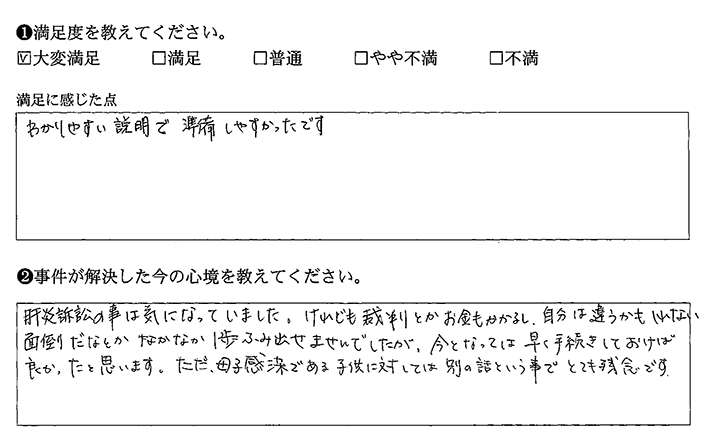 ❶満足度を教えてください。
☑大変満足 □満足 □普通 □やや不満 □不満
満足に感じた点
わかりやすい説明で 準備しやすかったです
❷事件が解決した今の心境を教えてください。
肝炎訴訟の事は気になっていました。けれども裁判とかお金もかかるし、自分は違うかもしれない
面倒だなとか なかなか1歩ふみ出せませんでしたが、今となっては早く手続きしておけば
良かったと思います。ただ、母子感染である子供に対しては別の話という事でとても残念です。